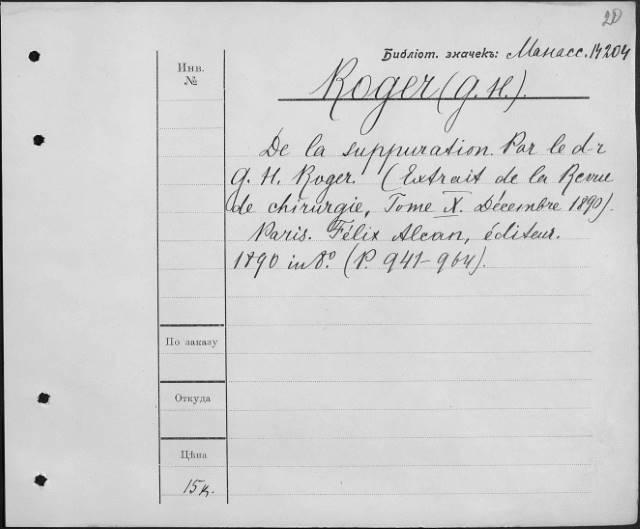 20
Библіот. значекъ: Манасс. 14204
Инв.
№
Roger (G. H.).
De la suppuration. Par le d-r
G. H. Roger. (Extrait de la Revue
de chirurgie, Tome X. Décembre 1890).
Paris. Félix Alcan, éditeur.
1890 in 8.° (P. 941-964).
По заказу
Откуда
Цѣна
15 к.